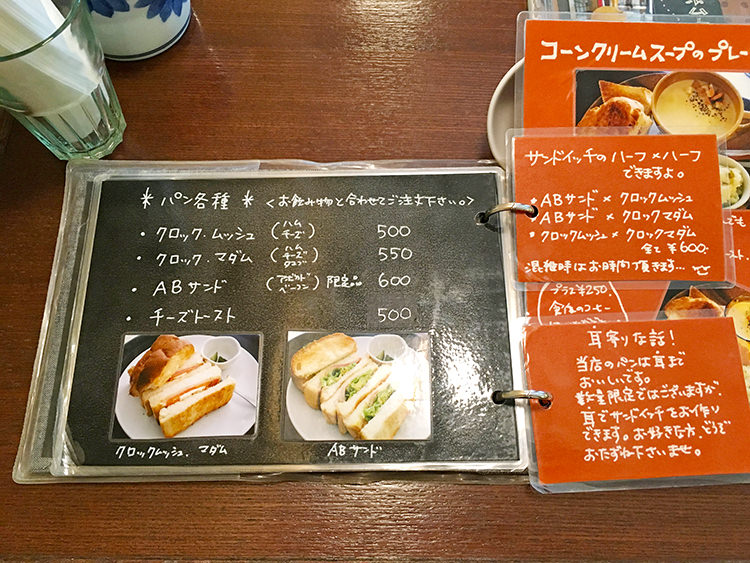 ＊ パン各種 ＊ <お飲み物と合わせてご注文下さい。>
・クロック・ムッシュ (ハム チーズ) 500
・クロック・マダム (ハム チーズ タマゴ) 550
・ABサンド (アボカド ベーコン) 限定品 600
・チーズトースト 500
クロックムッシュ、マダム
ABサンド
コーンクリームスープのプレー
サンドイッチのハーフ×ハーフ
できますよ。
・ABサンド×クロックムッシュ
ABサンド×クロックマダム
・クロックムッシュ×クロックマダム
全て ¥600-
混雑時はお時間頂きます…
プラス¥250.
食後のコーヒー
耳寄りな話！
当店のパンは耳まで
おいしいです。
数量限定ではございますが、
耳でサンドイッチをお作り
できます。お好きな方、どうぞ
おたずね下さいませ。